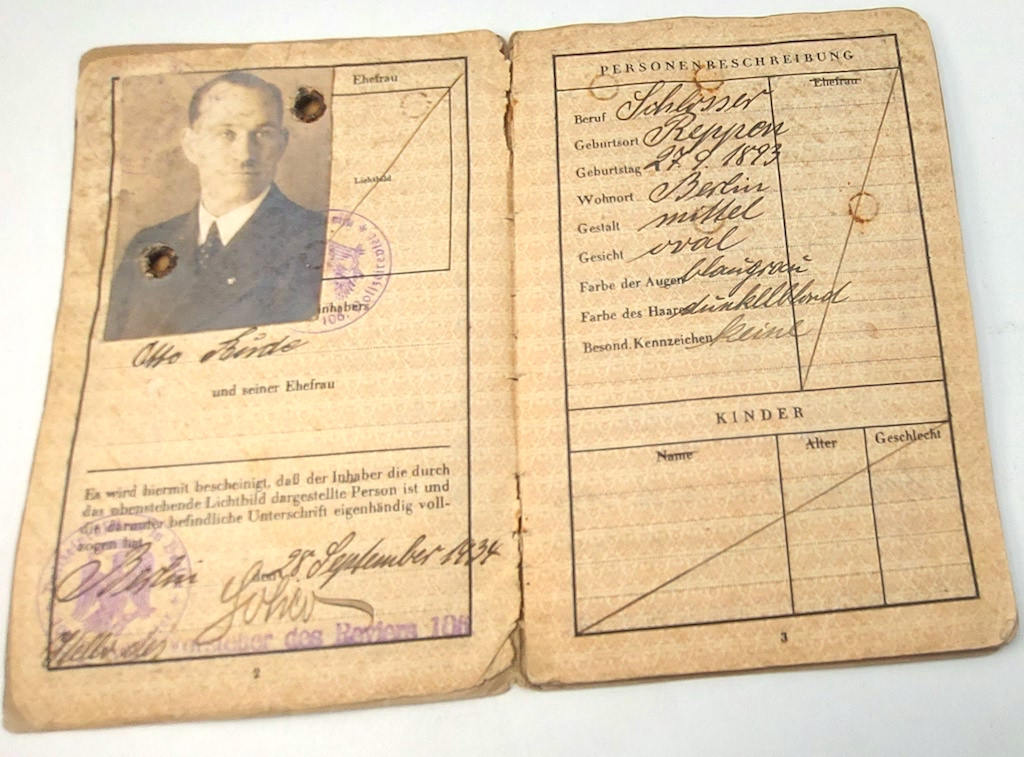 Ehefrau
Lichtbild
106. Polizeirevier
Inhabers
Otto
und seiner Ehefrau
Es wird hiermit bescheinigt, daß der Inhaber die durch
das obenstehende Lichtbild dargestellte Person ist und
die darunter befindliche Unterschrift eigenhändig voll-
zogen hat.
Berlin den 28 September 1934
vorsteher des Reviers 106
2
PERSONENBESCHREIBUNG
Ehefrau
Beruf Schlosser
Geburtsort Reppen
Geburtstag 27. 9. 1893
Wohnort Berlin
Gestalt mittel
Gesicht oval
Farbe der Augen blaugrau
Farbe des Haares dunkelblond
Besond. Kennzeichen keine
KINDER
Name Alter Geschlecht
3